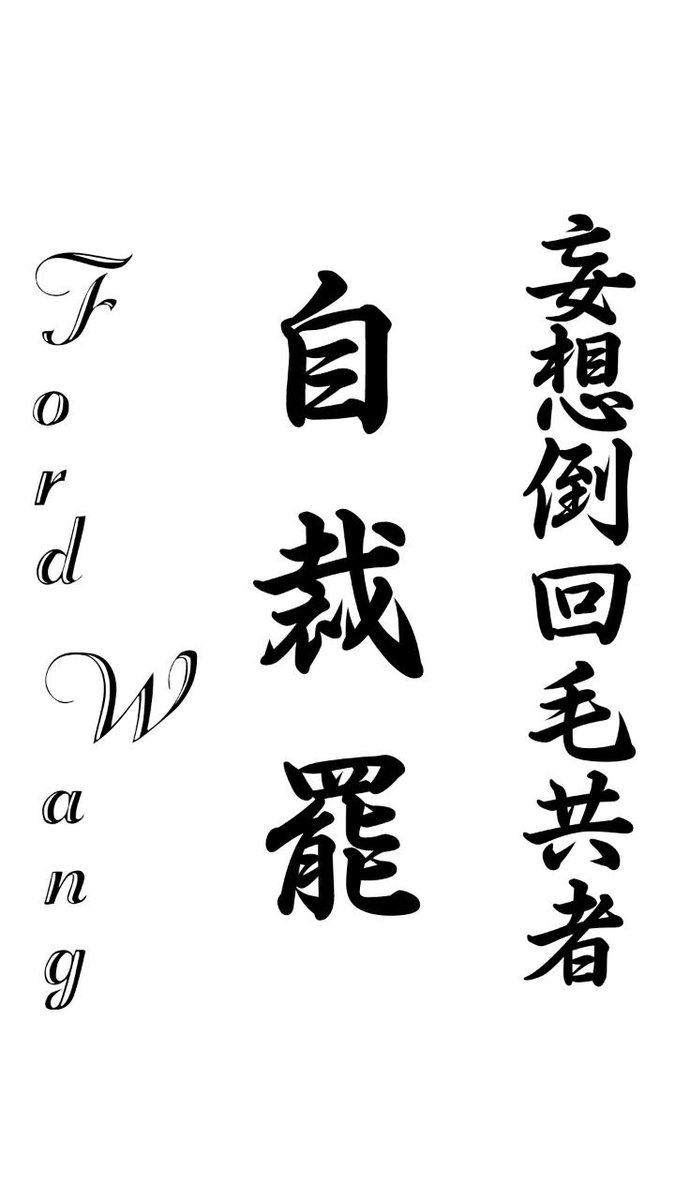 妄想倒回毛共者
自裁罷
Ford Wang